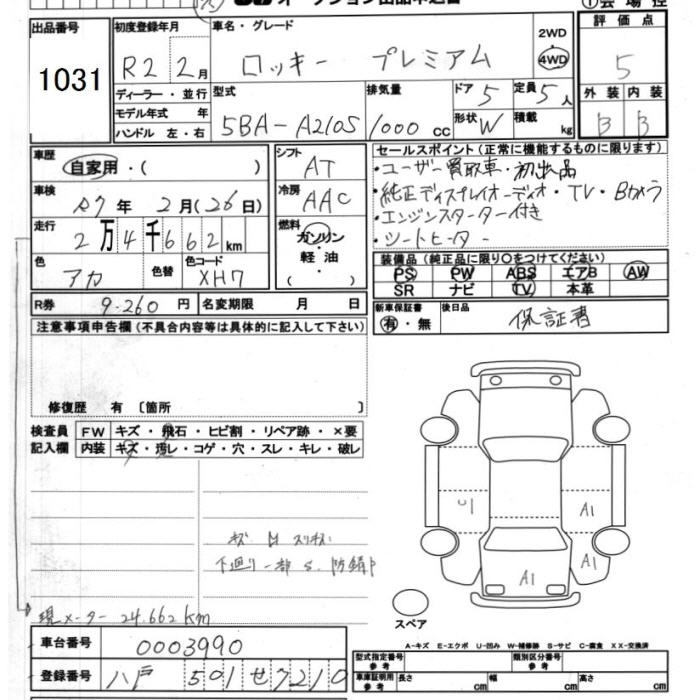 オークション出品申込書
①会場控
出品番号 初度登録年月 車名・グレード 評価点
1031 R2 2月 ロッキー プレミアム 2WD 4WD 5
ディーラー・並行 型式 排気量 ドア 5 定員 5人 外装 内装
モデル年式 年 5BA-A210S 1000cc 形状 W 積載 kg B B
ハンドル 左・右
車歴 自家用・( ) シフト AT セールスポイント(正常に機能するものに限ります)
・ユーザー買取車・初出品
車検 R7年 2月(26日) 冷房 AAC ・純正ディスプレイオーディオ・TV・Bカメラ
走行 2万4千662km 燃料 ガソリン・軽油・( ) ・エンジンスターター付き
・シートヒーター
色 アカ 色替 色コード XH7 装備品(純正品に限り○をつけてください)
PS PW ABS エアB AW
SR ナビ TV 本革
R券 9.260円 名変期限 月 日 新車保証書 有・無 後日品 保証書
注意事項申告欄(不具合内容等は具体的に記入して下さい)
修復歴 有〔箇所 〕
検査員 FW キズ・飛石・ヒビ割・リペア跡・×要
記入欄 内装 キズ・汚レ・コゲ・穴・スレ・キレ・破レ
U1 A1
A1 A1
下廻り一部S.防錆P
スペア
現メーター24.662km
A-キズ E-エクボ U-凹み W-補修跡 S-サビ C-腐食 XX-交換済
車台番号 0003990 型式指定番号 参考 類別区分番号 参考
登録番号 八戸 501 せ7210 車庫証明用 参考 長さ cm 幅 cm 高さ cm